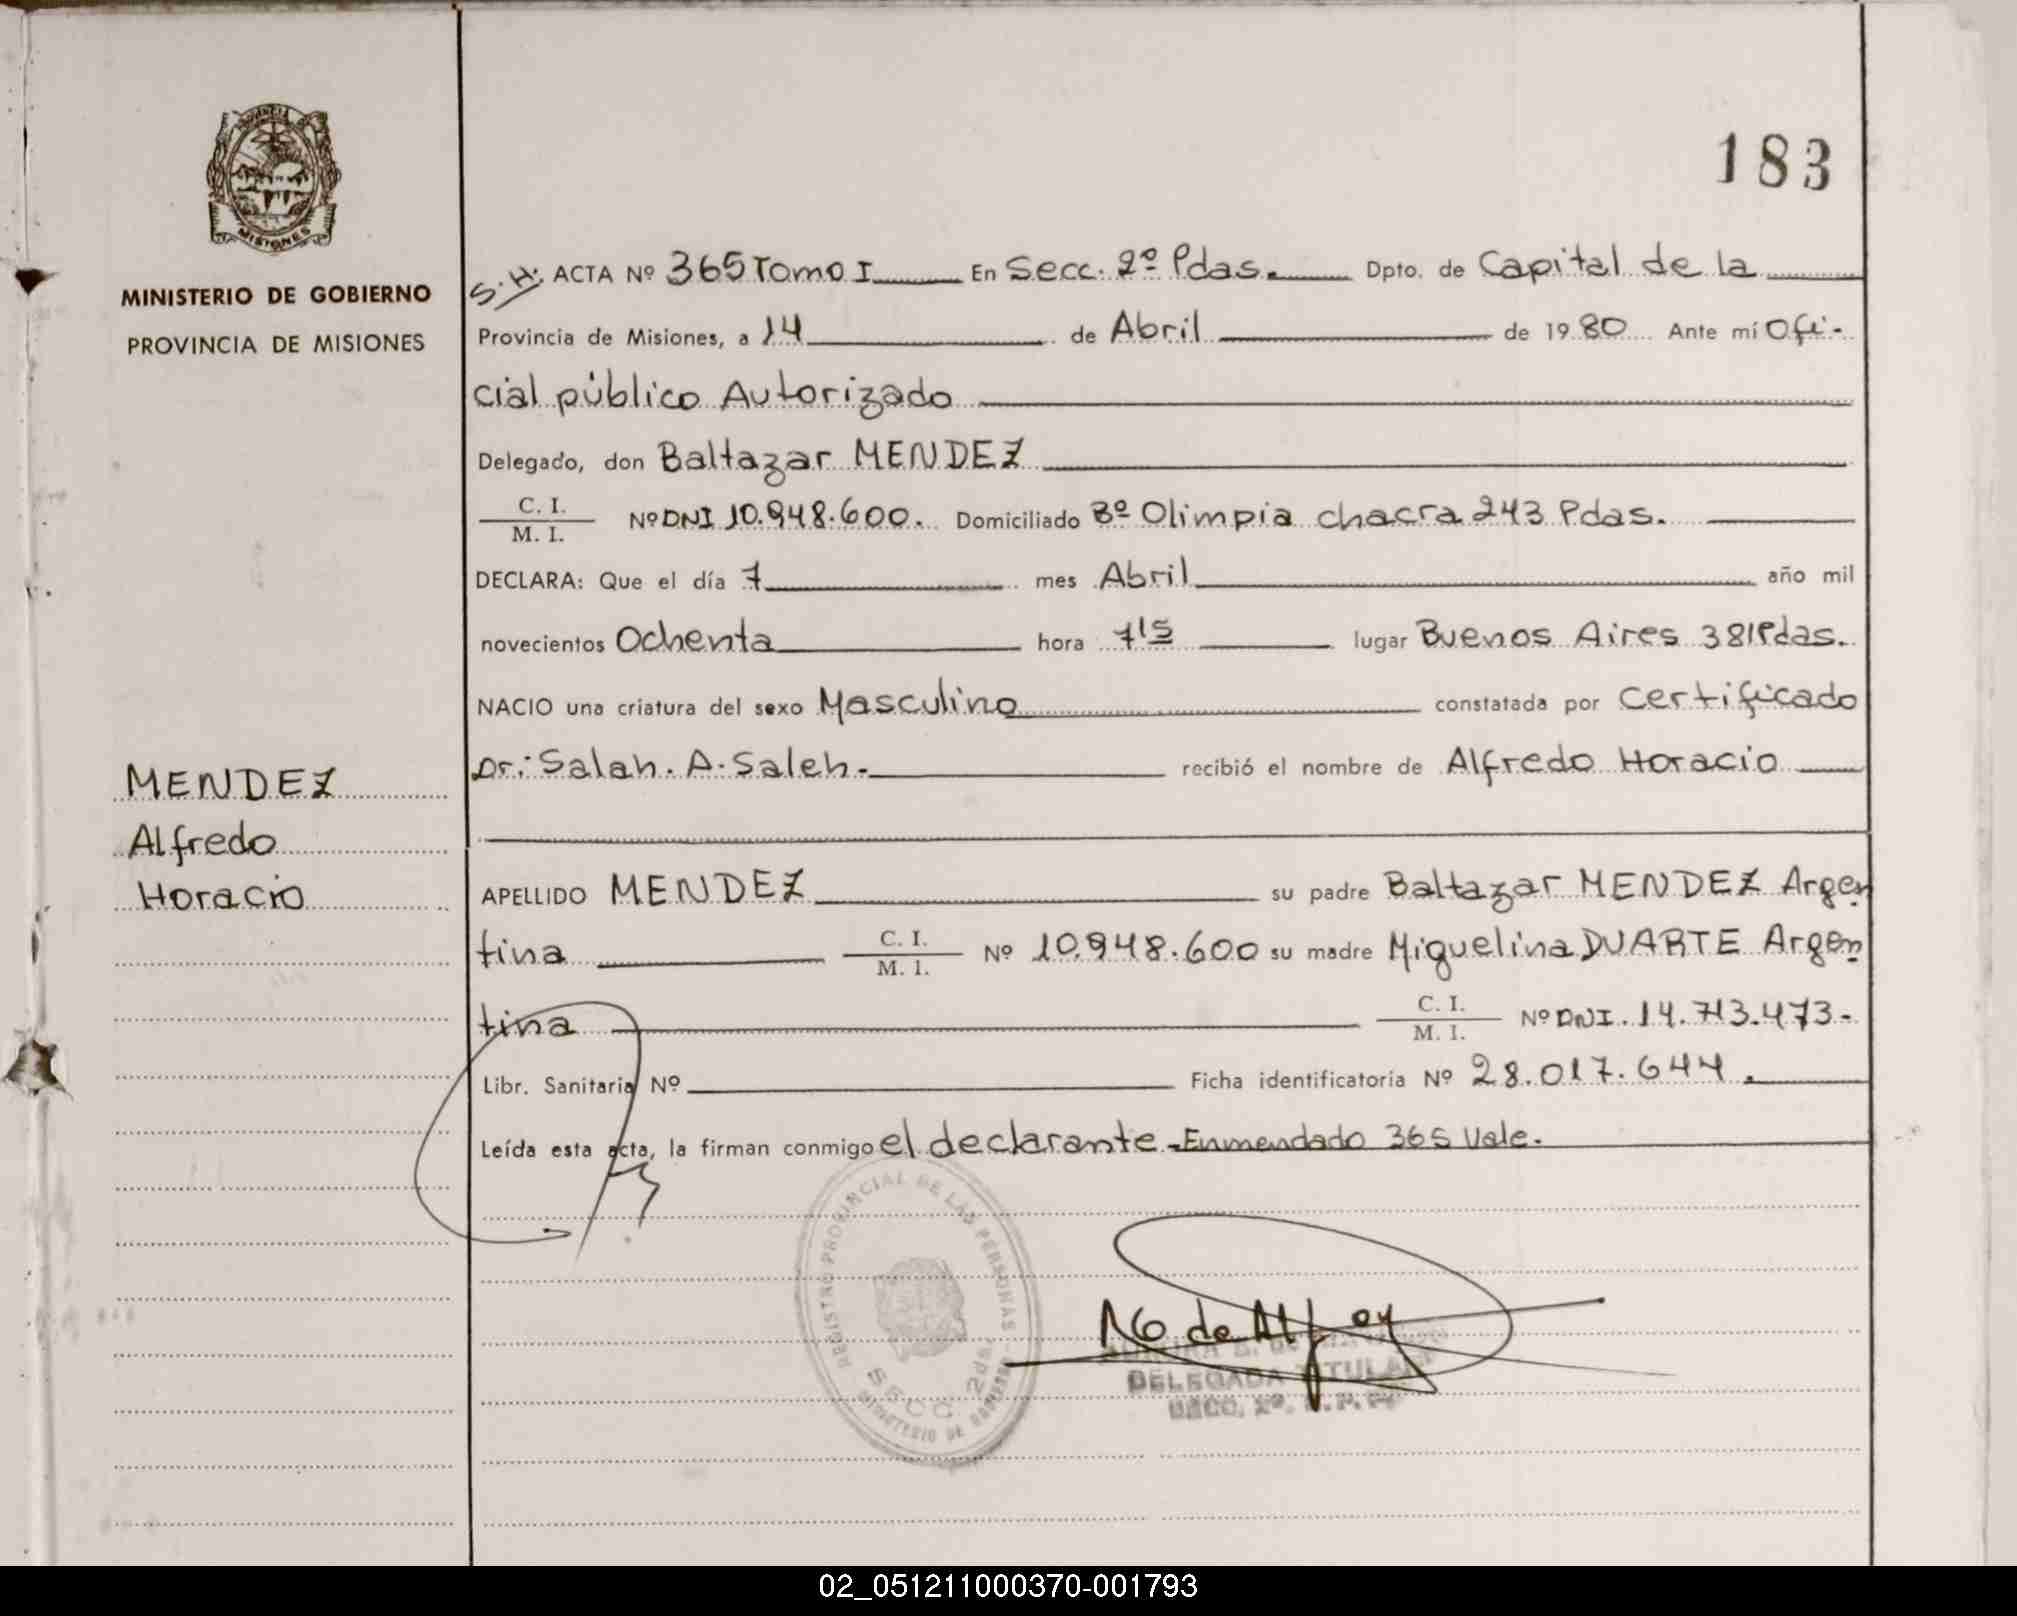 183
PROVINCIA DE
MISIONES
MINISTERIO DE GOBIERNO
PROVINCIA DE MISIONES
S.H. ACTA Nº 365 Tomo I En Secc. 2º Pdas. Dpto. de Capital de la
Provincia de Misiones, a 14 de Abril de 1980 Ante mí Ofi-
cial público Autorizado
Delegado, don Baltazar MENDEZ
C. I.
M. I. Nº DNI 10.948.600. Domiciliado Bº Olimpia chacra 243 Pdas.
DECLARA: Que el día 7 mes Abril año mil
novecientos Ochenta hora 7'15 lugar Buenos Aires 381 Pdas.
NACIO una criatura del sexo Masculino constatada por Certificado
Dr: Salah. A. Saleh. recibió el nombre de Alfredo Horacio
MENDEZ
Alfredo
Horacio
APELLIDO MENDEZ su padre Baltazar MENDEZ Argen
tina C. I.
M. I. Nº 10.948.600 su madre Miguelina DUARTE Argen
tina C. I.
M. I. Nº DNI. 14.713.473-
Libr. Sanitaria Nº Ficha identificatoria Nº 28.017.644.
Leída esta acta, la firman conmigo el declarante - Enmendado 365 Vale.
REGISTRO PROVINCIAL DE LAS PERSONAS
SECC. 2da.
MINISTERIO DE GOBIERNO
DELEGADA TITULAR
SECC. 2º
02_051211000370-001793